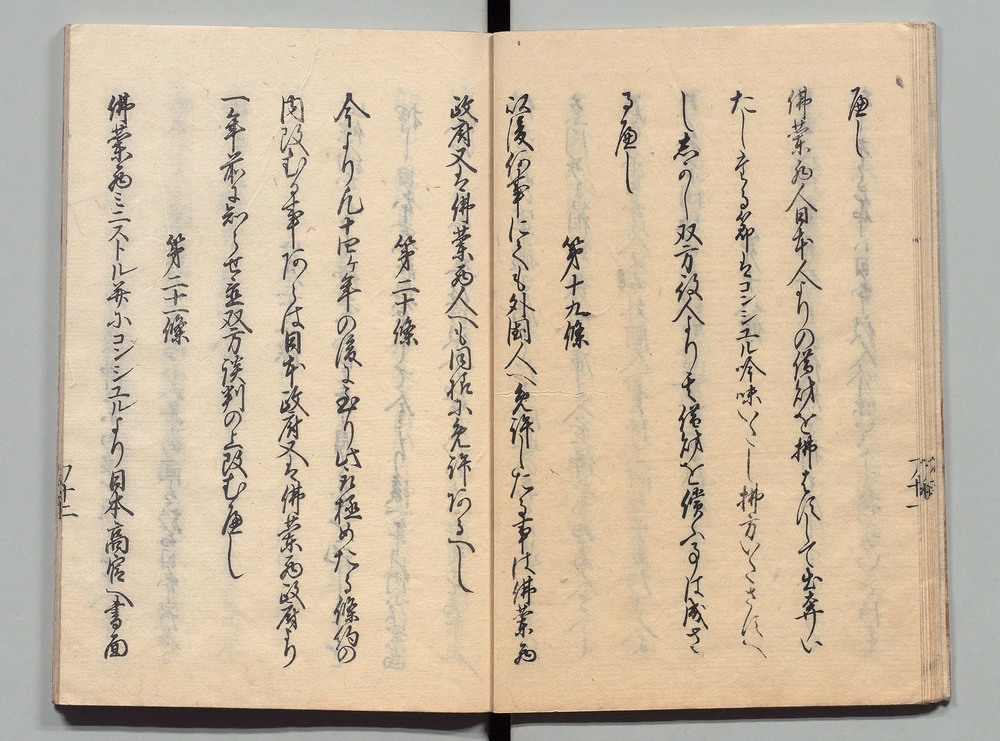 へし
佛蘭西人日本人よりの借財を拂はすして出奔い
たし来る節はコンシユル吟味いたし拂方いたさすへ
し志かし双方役人より其借財を償ふるは成さ
るへし
第十九條
以後何事にても外國人へ免許したる事は佛蘭西
政府又は佛蘭西人へも同樣に免許あるへし
第二十條
今より凡十四ヶ年の後に至り此取極めたる條約の
内改むる事あらは日本政府又は佛蘭西政府より
一年前に知らせ置双方談判の上改むへし
第二十一條
佛蘭西ミニストル并にコンシユルより日本高官へ書面